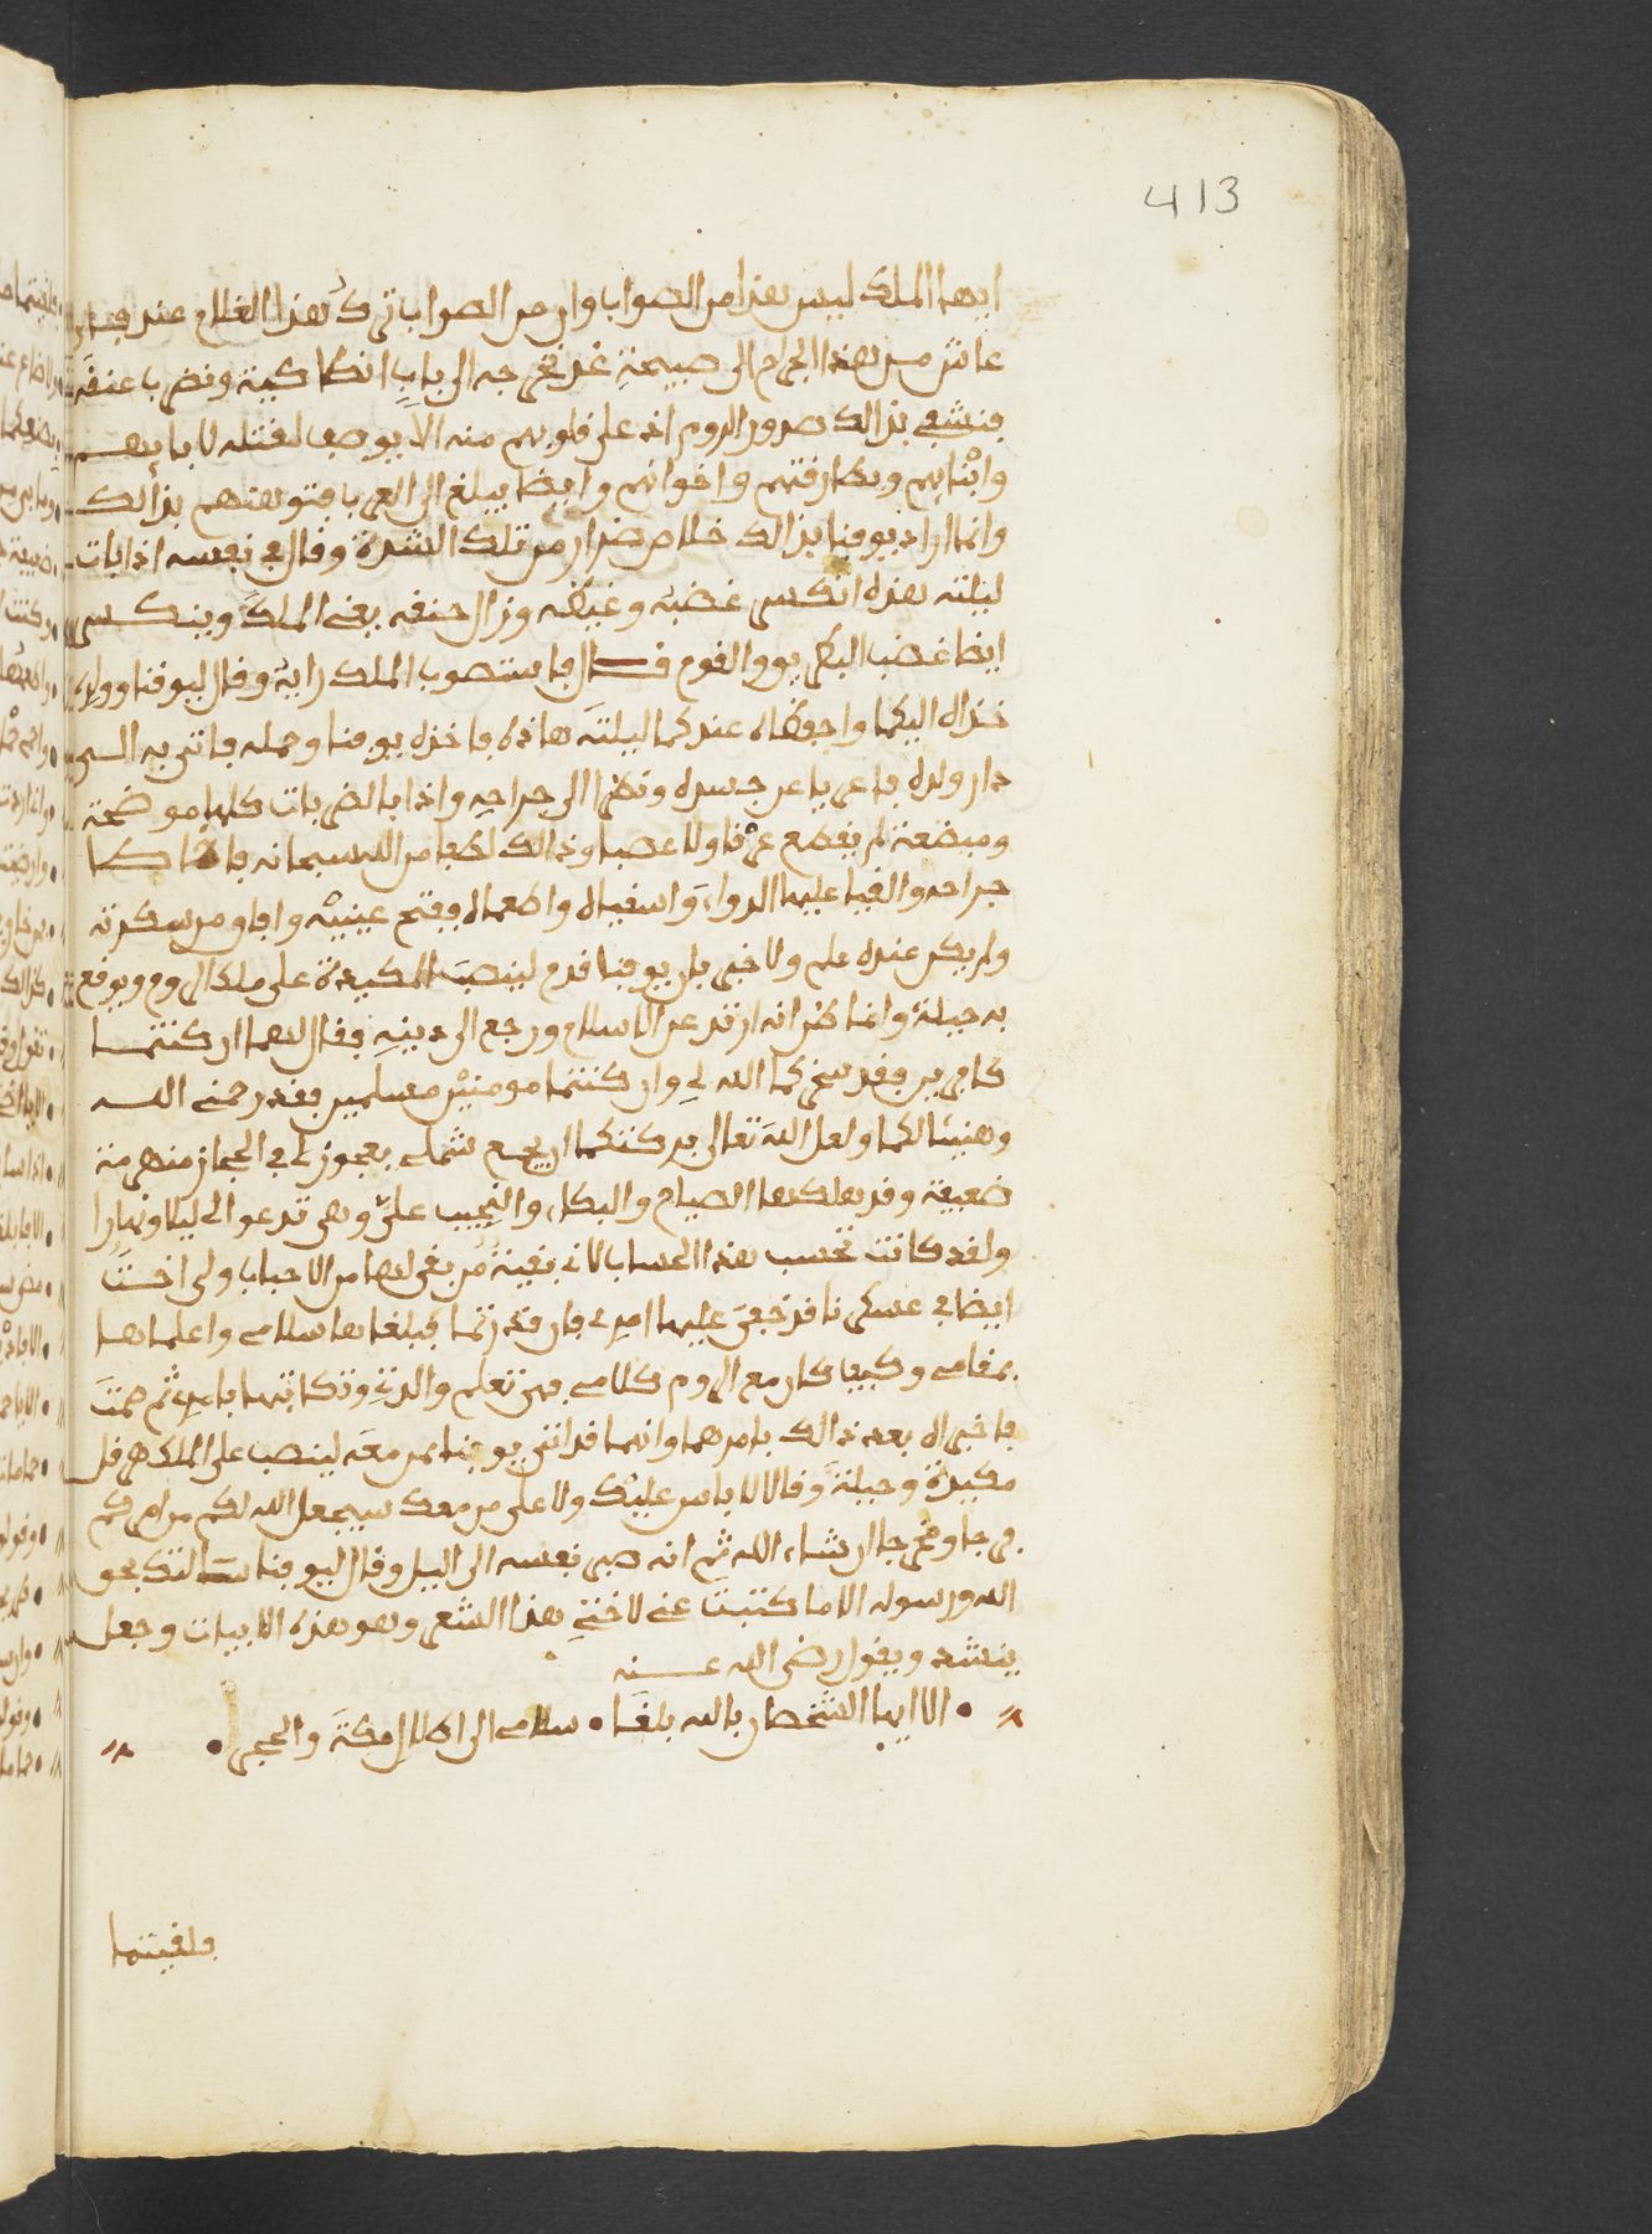 413
ايها الملك ليس هذا من الصواب وان من الصواب ترك هذا الغلام عند
عاش من هذا الجراح الى صبيحة غد نخرجه الى باب انطاكية ونضرب عنقه
فنشفي بذالك صدور الروم اذ على قلوبهم منه الا يوصف لقتله لابايهم
وابنايهم وبطارقتهم واخوانهم وايضا يبلغ الى العرب فتوهنهم بذالك
وانما اراد يوقنا بذالك خلاص ضرار من تلك الشدة وقال في نفسه اذا بات
ليلته هذه انكسر غضبه وغيظه وزال حنقه يعني الملك وينكسر
ايضا غضب البطريق والقوم قال فاستصوب الملك رايه وقال ليوقنا وولده
خذاه اليكما واحفظاه عندكما ليلته هاذه فاخذه يوقنا وحمله فاتى به الى
دار ولده فاعريا عن جسده ونظرا الى جراحه واذا بالضربات كلها موضحة
ومبضعة لم يقطع عرقا ولا عصبا وذالك لطفا من الله سبحانه فاخاطا
جراحه والقيا عليها الدواء واسقياه واطعماه ففتح عينيه وافاق من سكرته
ولم يكن عنده علم ولا خبر بان يوقنا قدم لينصب المكيدة على ملك الروم ويوقع
به حيلة وانما ظن انه ارتد عن الاسلام ورجع الى دينه فقال لهما ان كنتما
كافرين فقد سخركما الله لي وان كنتما مومنين مسلمين فقد رحمني الله
وهنيئا لكما ولعل الله تعالى ببركتكما ان يجمع شملي بعجوز لي في الحجاز منهرمة
ضعيفة وقد هلكها الصياح والبكاء والنحيب علي وهي تدعو الي ليلا ونهارا
ولقد كانت تحسب هذا الحساب لاني بقية من بقى لها من الاحباب ولي اخت
ايضا في عسكرنا قد خفي عليها امري فان قدرتما فبلغاها سلامي واعلماها
بمقامي وكيف كان مع الروم كلامي فهي تعلم والدتي وتكاتبها بامري ثم صمت
فاخبراه بعد ذالك بامرهما وانهما قد اتى يوقنا بمن معه لينصب على الملك هرقل
مكيدة وحيلة وقالا لا باس عليك ولا على من معك سيجعل الله لكم من امركم
فرجا ومخرجا ان شاء الله ثم انه صبر نفسه الى الليل وقال ليوقنا سالتك بحق
الله ورسوله الا ما كتبت عني لاختي هذا الشعر وهو هذه الابيات وجعل
ينشد ويقول رضي الله عنه
الا ايها الشخصان بالله بلغا • سلامي الى اطلال مكة والحجر •
فلقيتما